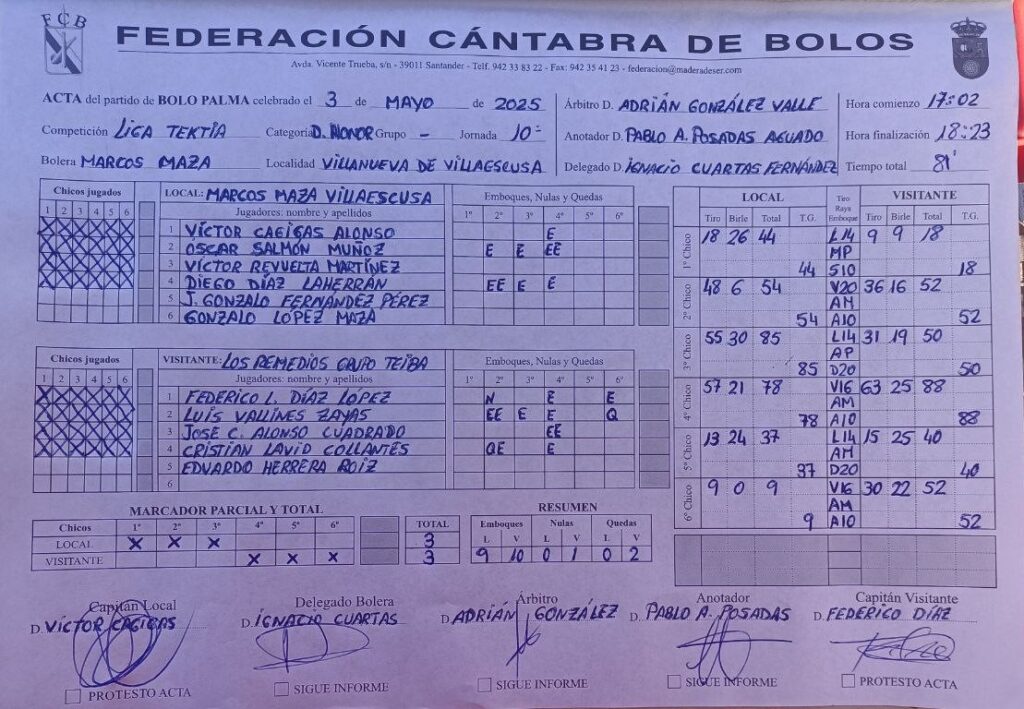 FCB
FEDERACIÓN CÁNTABRA DE BOLOS
Avda. Vicente Trueba, s/n - 39011 Santander - Telf. 942 33 83 22 - Fax: 942 35 41 23 - federacion@maderadeser.com
ACTA del partido de BOLO PALMA celebrado el 3 de MAYO de 2025
Competición LIGA TEKTIA Categoría D. HONOR Grupo - Jornada 10ª
Bolera MARCOS MAZA Localidad VILLANUEVA DE VILLAESCUSA
Árbitro D. ADRIÁN GONZÁLEZ VALLE
Anotador D. PABLO A. POSADAS AGUADO
Delegado D. IGNACIO CUARTAS FERNÁNDEZ
Hora comienzo 17:02
Hora finalización 18:23
Tiempo total 81'
Chicos jugados
1 2 3 4 5 6
LOCAL: MARCOS MAZA VILLAESCUSA
Jugadores: nombre y apellidos
Emboques, Nulas y Quedas
1º 2º 3º 4º 5º 6º
1 VÍCTOR CAGIGAS ALONSO E
2 OSCAR SALMÓN MUÑOZ E E EE
3 VÍCTOR REVUELTA MARTÍNEZ
4 DIEGO DÍAZ LAHERRÁN EE E E
5 J. GONZALO FERNÁNDEZ PÉREZ
6 GONZALO LÓPEZ MAZA
Chicos jugados
1 2 3 4 5 6
VISITANTE: LOS REMEDIOS GRUPO TEIBA
Jugadores: nombre y apellidos
Emboques, Nulas y Quedas
1º 2º 3º 4º 5º 6º
1 FEDERICO I. DÍAZ LÓPEZ N E E
2 LUIS VALLINES ZAYAS EE E E Q
3 JOSE C. ALONSO CUADRADO EE
4 CRISTIAN LAVID COLLANTES QE E
5 EDUARDO HERRERA ROIZ
6
MARCADOR PARCIAL Y TOTAL
Chicos 1º 2º 3º 4º 5º 6º TOTAL
LOCAL X X X 3
VISITANTE X X X 3
RESUMEN
Emboques Nulas Quedas
L V L V L V
9 10 0 1 0 2
LOCAL VISITANTE
Tiro Birle Total T.G. Tiro Raya Emboque Tiro Birle Total T.G.
1º Chico 18 26 44 L14 9 9 18
MP
44 S10 18
2º Chico 48 6 54 V20 36 16 52
AM
54 A10 52
3º Chico 55 30 85 L14 31 19 50
AP
85 D20 50
4º Chico 57 21 78 V16 63 25 88
AM
78 A10 88
5º Chico 13 24 37 L14 15 25 40
AM
37 D20 40
6º Chico 9 0 9 V16 30 22 52
AM
9 A10 52
Capitán Local Delegado Bolera Árbitro Anotador Capitán Visitante
D. VÍCTOR CAGIGAS D. IGNACIO CUARTAS D. ADRIÁN GONZÁLEZ D. PABLO A. POSADAS D. FEDERICO DÍAZ
PROTESTO ACTA SIGUE INFORME SIGUE INFORME SIGUE INFORME PROTESTO ACTA